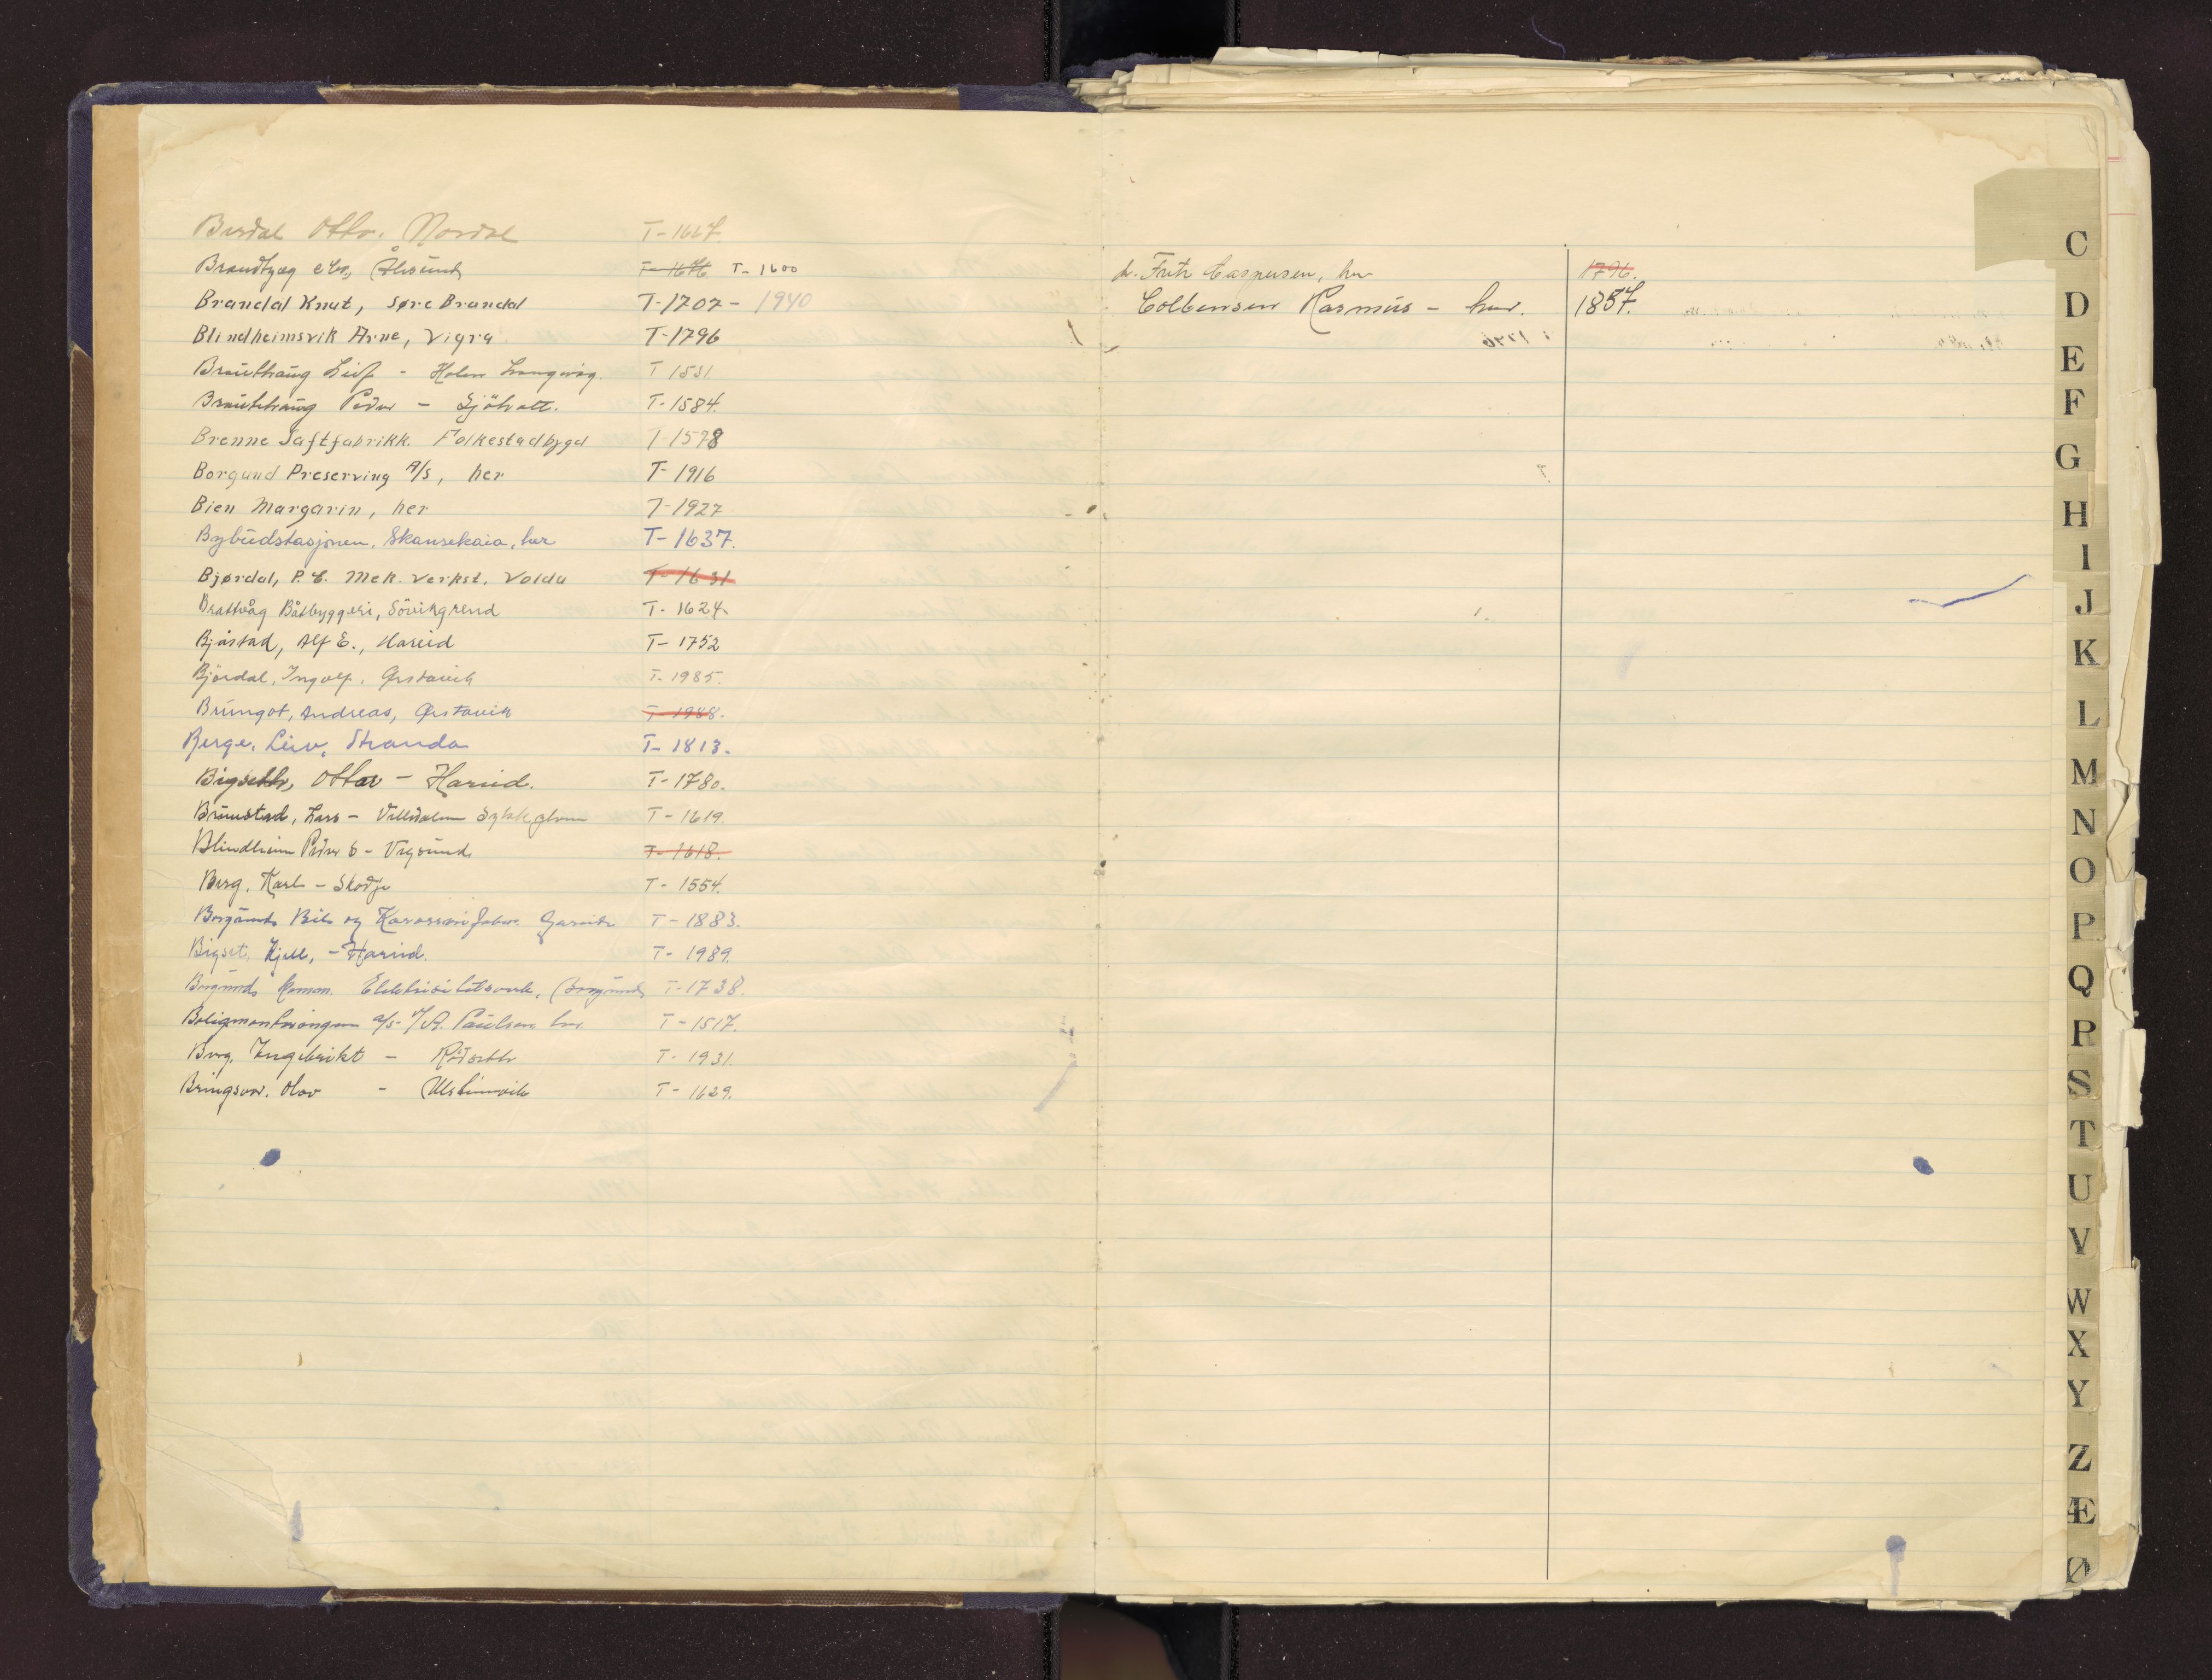 Berdal Otto. Nordal T-1667.
Brandtzæg & Co, Ålesund T-1676 T-1600
Brandal Knut, søre Brandal T-1707 - 1940
Blindheimsvik Arne, Vigra T-1796
Brauthaug Leif - Holen Langevåg. T 1531
Peder - Sjöholt. T-1584.
Brenne Saftfabrikk. Folkestadbygd T-1578
Borgund Preserving A/S, her T-1916
Bien Margarin, her T-1927
Bybudstasjonen, Skansekaia, her T-1637.
Bjørdal, P. E. Mek. Verkst. Volda T-1631
Brattvåg Båtbyggeri, Søvikgrend T-1624.
Bjåstad, Alf E., Hareid T-1752
Björdal, Ingolf, Ørstavik T-1985.
Brungot, Andreas, Ørstavik T-1988.
Berge, Liv, Stranda T-1813.
Bigseth, Ottar - Hareid. T-1780.
Lars - Valldalen T-1619.
Blindheim Peder - Vigsund T-1618.
Berg, Karl - Skodje T-1554.
Borgund Bil og T-1883.
Bigset, Kjell, - Hareid. T-1989.
Borgund Komm. Elektrisitetsverk, Borgund T-1738.
Boligmonteringen a/s v/A. Paulsen her. T-1517.
Berg, Ingebrikt - Rødseth T-1931.
Bringsvor, Olav - Ulsteinvik T-1629.
Fritz Caspersen, her 1796.
Colbensen Rasmus - her. 1857.
C
D
E
F
G
H
I
J
K
L
M
N
O
P
Q
R
S
T
U
V
W
X
Y
Z
Æ
Ø